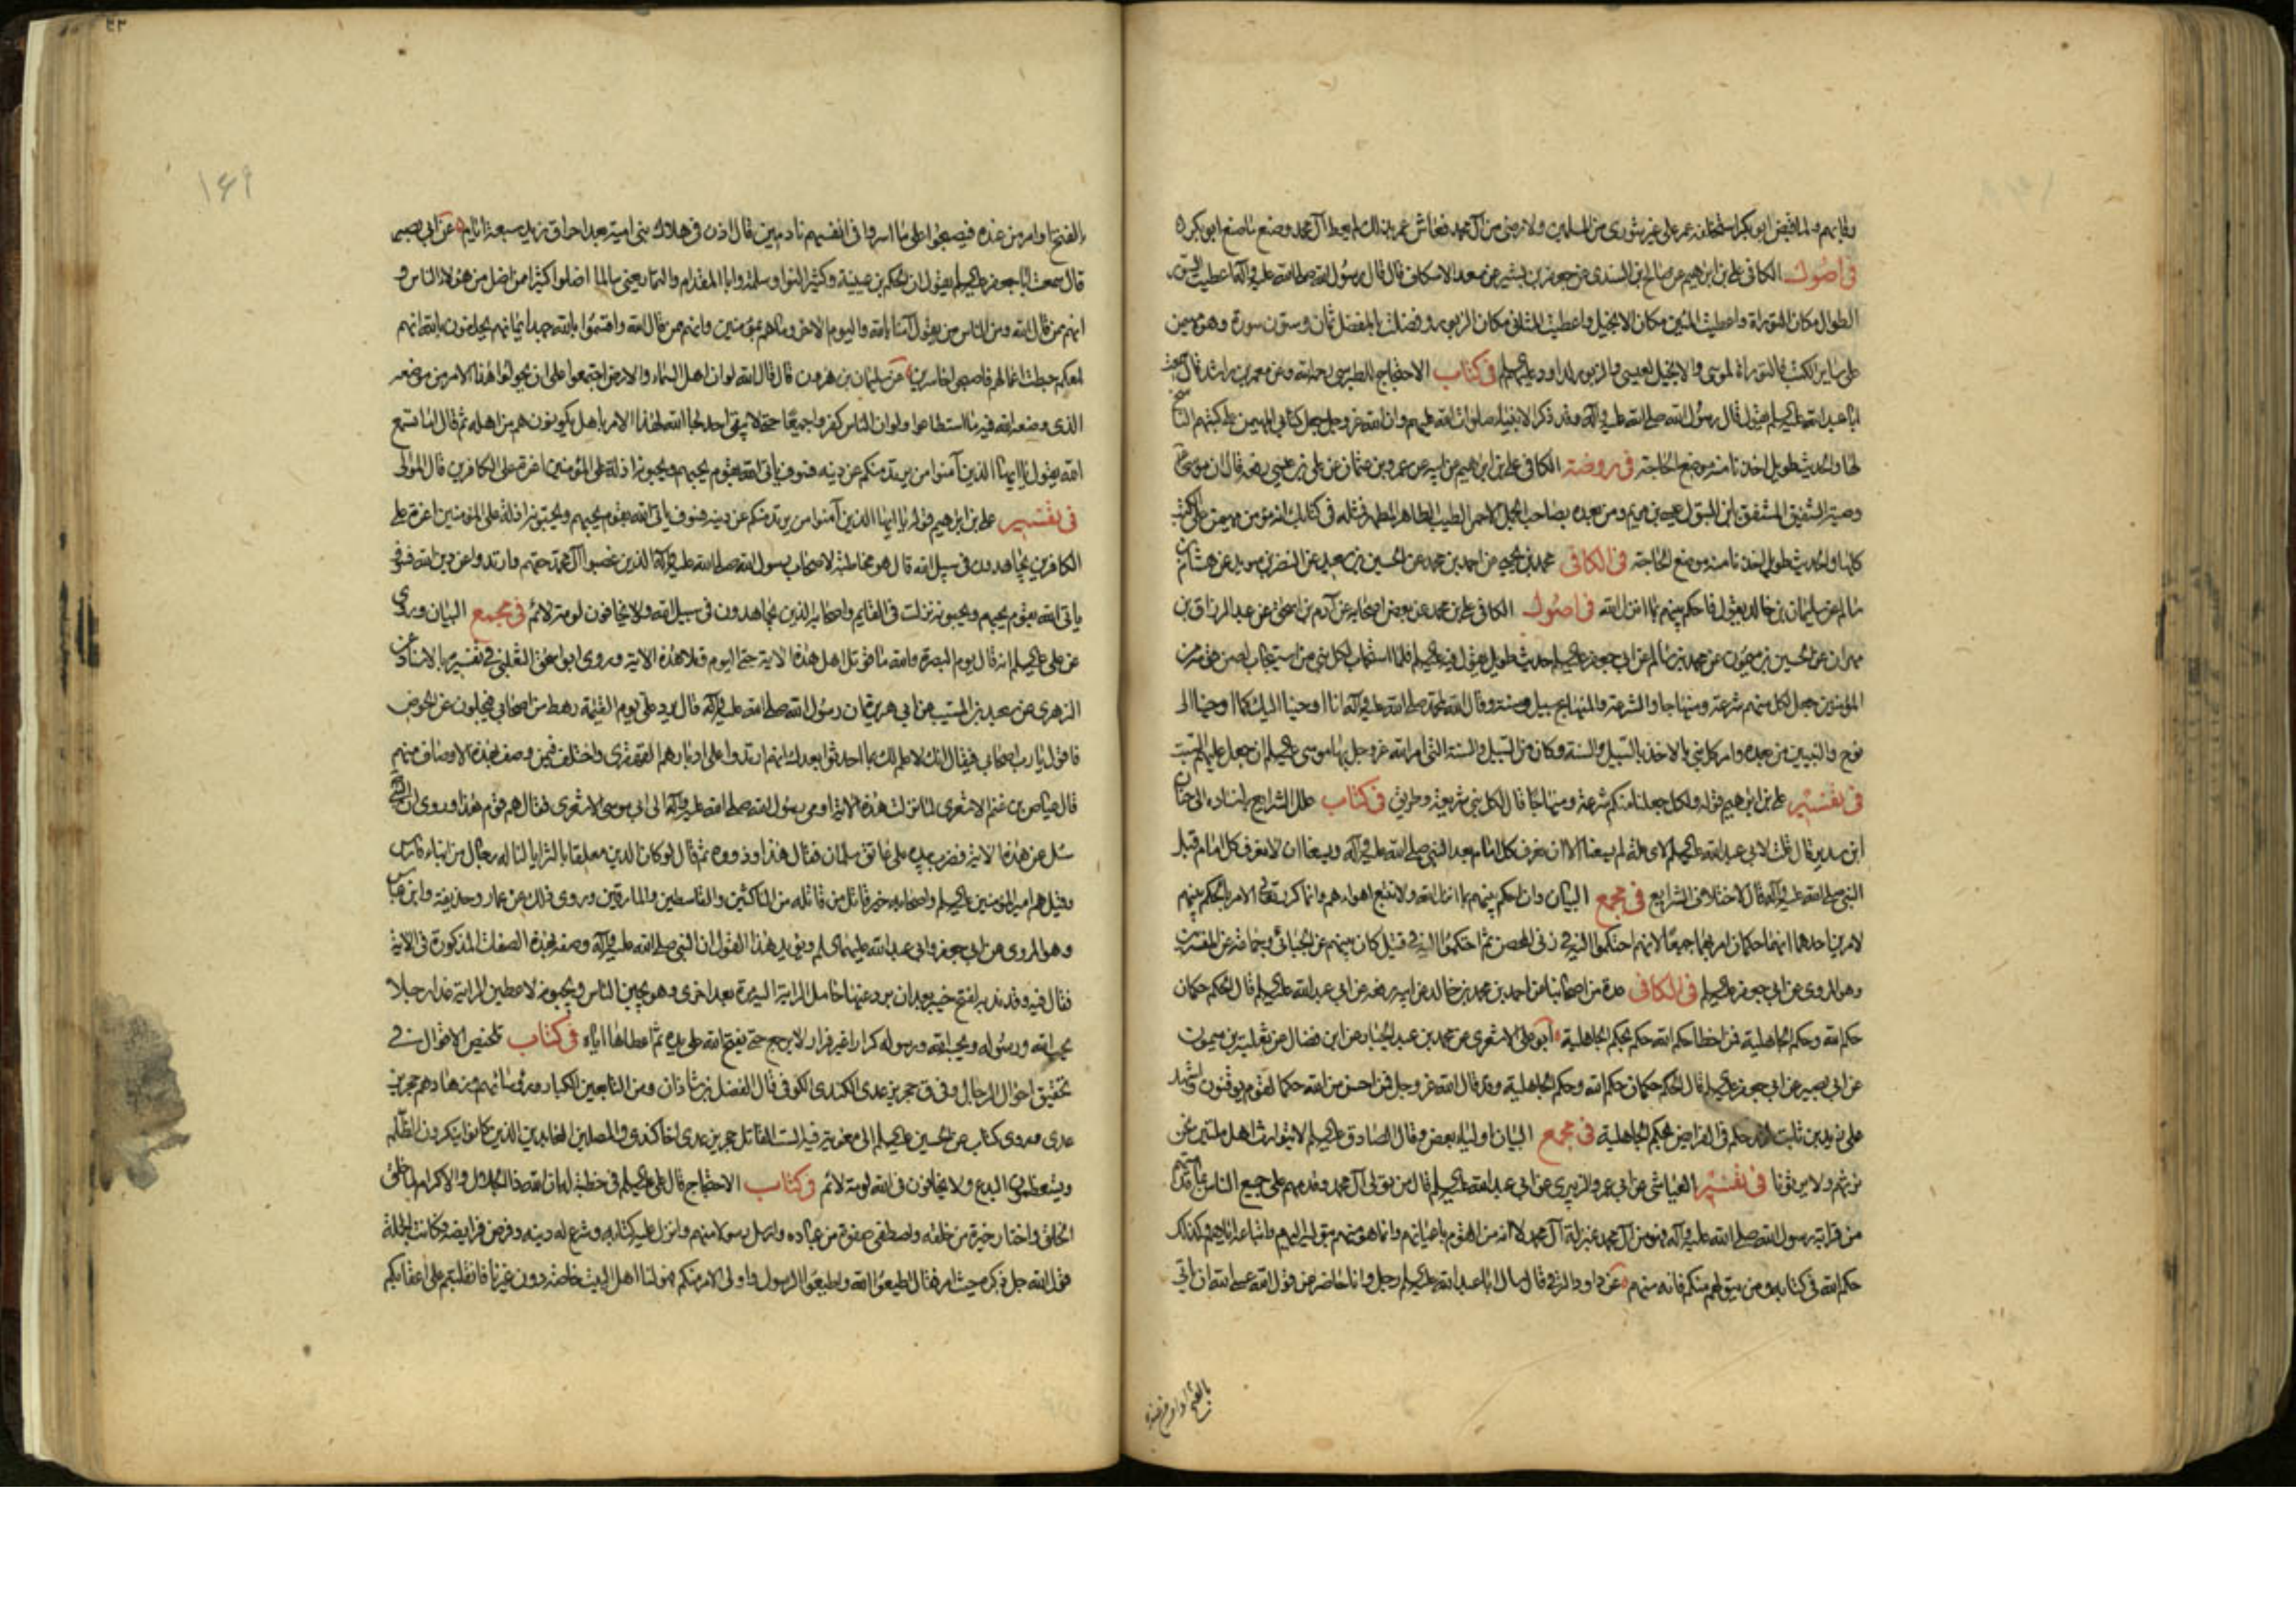 في أصول الكافي علي بن ابراهيم عن صالح بن السندي عن جعفر بن بشير عن سعد الاسكاف قال قال رسول الله صلى الله عليه وآله اعطيت السور
الطوال مكان التوراة واعطيت المئين مكان الانجيل واعطيت المثاني مكان الزبور وفضلت بالمفصل ثمان وستون سورة وهو مهيمن
على ساير الكتب فالتوراة لموسى والانجيل لعيسى والزبور لداود عليهم السلم في كتاب الاحتجاج للطبرسي رحمه الله وعن معمر بن راشد قال سمعت
ابا عبد الله عليه السلم يقول قال رسول الله صلى الله عليه وآله وقد ذكر الانبياء صلوات الله عليهم وان الله عز وجل جعل كتابي المهيمن على كتبهم الناسخ
لها والحديث طويل اخذنا منه موضع الحاجة في روضة الكافي علي بن ابراهيم عن ابيه عن عمرو بن عثمان عن علي بن عيسى رفعه قال ان موسى
كلها والحديث طويل اخذنا منه موضع الحاجة في الكافي محمد بن يحيى عن احمد بن محمد عن الحسين بن سعيد عن النضر بن سويد عن هشام بن
سالم عن سليمان بن خالد فاحكم بينهم بما انزل الله في اصول الكافي علي بن محمد عن بعض اصحابه عن آدم بن اسحق عن عبد الرزاق بن
مهران عن الحسين بن ميمون عن محمد بن سالم عن ابي جعفر عليه السلم حديث طويل يقول فيه عليه السلم فلما استجاب لكل نبي من استجاب له من قومه من
المؤمنين جعل لكل منهم شرعة ومنهاجا والشرعة والمنهاج سبيل وسنة وقال الله لمحمد صلى الله عليه وآله انا اوحينا اليك كما اوحينا الى
نوح والنبيين من بعده وامر كل نبي بالاخذ بالسبيل والسنة وكان من السبيل والسنة التي امر الله عز وجل بها موسى عليه السلم ان جعل عليهم السبت
في تفسير علي بن ابراهيم قوله ولكل جعلنا منكم شرعة ومنهاجا قال لكل نبي شريعة وطريق في كتاب علل الشرايع باسناده الى حنان
ابن سدير قال قلت لابي عبد الله عليه السلم لاي علة لم يسعنا الا ان نعرف كل امام بعد النبي صلى الله عليه وآله ويسعنا ان لا نعرف كل امام قبل
النبي صلى الله عليه وآله قال لاختلاف الشرايع في مجمع البيان وان احكم بينهم بما انزل الله ولا تتبع اهواءهم وانما كرر تعالى الامر بالحكم بينهم
لامرين احدهما انهما حكمان امر بهما جميعا لانهم احتكموا اليه في زنى المحصن ثم احتكموا اليه في قتيل كان بينهم عن الجبائي وجماعة من المفسرين
وهو المروي عن ابي جعفر عليه السلم في الكافي عدة من اصحابنا عن احمد بن محمد بن خالد عن ابيه رفعه عن ابي عبد الله عليه السلم قال الحكم حكمان
حكم الله وحكم الجاهلية فمن اخطأ حكم الله حكم بحكم الجاهلية ابو علي الاشعري عن محمد بن عبد الجبار عن ابن فضال عن ثعلبة بن ميمون
عن ابي بصير عن ابي جعفر عليه السلم قال الحكم حكمان حكم الله وحكم الجاهلية وقد قال الله عز وجل فمن احسن من الله حكما لقوم يوقنون واشهد
على زيد بن ثابت لقد حكم في الفرايض بحكم الجاهلية في مجمع البيان اولياء بعض وقال الصادق عليه السلم لا يتوارث اهل ملتين نحن
نرثهم ولا يرثونا في تفسير العياشي عن ابي عمرو الزبيري عن ابي عبد الله عليه السلم قال من تولى آل محمد وقدمهم على جميع الناس بما قدمهم
من قرابة رسول الله صلى الله عليه وآله فهو من آل محمد بمنزلة آل محمد لا انه من القوم باعيانهم وانما هو منهم بتوليه اليهم واتباعه اياهم وكذلك
حكم الله في كتابه ومن يتولهم منكم فانه منهم عن داود الرقي قال سال ابا عبد الله عليه السلم رجل وانا حاضر عن قول الله عسى الله ان ياتي
بالفتح او امر من عنده
١٤٩
بالفتح او امر من عنده فيصبحوا على ما اسروا في انفسهم نادمين قال اذن في هلاك بني امية بعد احراق زيد سبعة ايام عن ابي بصير
قال سمعت ابا جعفر عليه السلم يقول ان الحكم بن عيينة وكثير النوا وسلمة وابا المقدام والتمار يعني سالما اضلوا كثيرا ممن ضل من هؤلاء الناس و
انهم ممن قال الله ومن الناس من يقول آمنا بالله واليوم الاخر وما هم بمؤمنين وانهم ممن قال الله واقسموا بالله جهد ايمانهم يحلفون بالله انهم
لمعكم حبطت اعمالهم فاصبحوا خاسرين عن سليمان بن هرون قال قال الله لو ان اهل السماء والارض اجتمعوا على ان يحولوا هذا الامر من موضعه
الذي وضعه الله فيه ما استطاعوا ولو ان الناس كفروا جميعا حتى لا يبقى احد لجاء الله لهذا الامر باهل يكونون هم من اهله ثم قال اما تسمع
الله يقول يا ايها الذين آمنوا من يرتد منكم عن دينه فسوف ياتي الله بقوم يحبهم ويحبونه اذلة على المؤمنين اعزة على الكافرين قال الموالى
في تفسير علي بن ابراهيم قوله يا ايها الذين آمنوا من يرتد منكم عن دينه فسوف ياتي الله بقوم يحبهم ويحبونه اذلة على المؤمنين اعزة على
الكافرين يجاهدون في سبيل الله قال هو مخاطبة لاصحاب رسول الله صلى الله عليه وآله الذين غصبوا آل محمد حقهم وارتدوا عن دين الله فسوف
ياتي الله بقوم يحبهم ويحبونه نزلت في القايم واصحابه الذين يجاهدون في سبيل الله ولا يخافون لومة لائم في مجمع البيان وروي
عن علي عليه السلم انه قال يوم البصرة والله ما قوتل اهل هذه الاية حتى اليوم وتلا هذه الاية وروى ابو اسحق الثعلبي في تفسيره بالاسناد عن
الزهري عن سعيد بن المسيب عن ابي هريرة ان رسول الله صلى الله عليه وآله قال يرد علي يوم القيمة رهط من اصحابي فيحلون عن الحوض
فاقول يا رب اصحابي فيقال انك لا علم لك بما احدثوا بعدك انهم ارتدوا على ادبارهم القهقرى واختلف فيمن وصف بهذه الاوصاف منهم
قال عياض بن غنم الاشعري لما نزلت هذه الاية اومى رسول الله صلى الله عليه وآله الى ابي موسى الاشعري فقال هم قوم هذا وروي ان النبي
سئل عن هذه الاية فضرب بيده على عاتق سلمان فقال هذا وذووه ثم قال لو كان الدين معلقا بالثريا لناله رجال من ابناء فارس
وقيل هم امير المؤمنين عليه السلم واصحابه حين قاتل من قاتله من الناكثين والقاسطين والمارقين وروي ذلك عن عمار وحذيفة وابن عباس
وهو المروي عن ابي جعفر وابي عبد الله عليهما السلم ويؤيد هذا القول ان النبي صلى الله عليه وآله وصفه بهذه الصفات المذكورة في الاية
فقال فيه وقد ندبه لفتح خيبر بعد ان رد عنها حامل الراية اليه مرة بعد اخرى وهو يجبن الناس ويجبنونه لاعطين الراية غدا رجلا
يحب الله ورسوله ويحبه الله ورسوله كرارا غير فرار لا يرجع حتى يفتح الله على يده ثم اعطاها اياه في كتاب تلخيص الاقوال في
تحقيق احوال الرجال وفي ق حجر بن عدي الكندي الكوفي قال الفضل بن شاذان ومن التابعين الكبار ورؤسائهم وزهادهم حجر بن
عدي وروي كتاب عن الحسين عليه السلم الى معوية فيه الست القاتل حجر بن عدي اخا كندة والمصلين العابدين الذين كانوا ينكرون الظلم
ويستعظمون البدع ولا يخافون في الله لومة لائم في كتاب الاحتجاج قال علي عليه السلم في خطبة له ان الله ذا الجلال والاكرام لما خلق
الخلق واختار خيرة من خلقه واصطفى صفوة من عباده وارسل رسولا منهم وانزل عليه كتابه وشرع له دينه وفرض فرايضه فكانت الجملة
قول الله جل ذكره حيث امر فقال اطيعوا الله واطيعوا الرسول واولي الامر منكم فهو لنا اهل البيت خاصة دون غيرنا فانقلبتم على اعقابكم